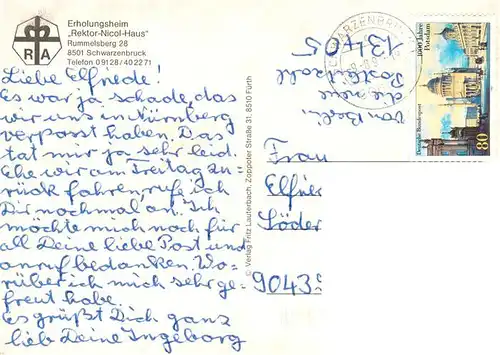 Erholungsheim
„Rektor-Nicol-Haus"
Rummelsberg 28
8501 Schwarzenbruck
Telefon 0 91 28 / 40 22 71
RA
Liebe Elfriede!
Es war ja schade, das
wir uns in Nürnberg
verpasst haben. Das
tat mir ja sehr leid.
Ehe wir am Freitag zu-
rück fahren, rufe ich
Dir nochmal an. Ich
möchte mich noch für
all Deine liebe Post und
anruf bedanken. Wo-
rüber ich mich sehr ge-
freut habe.
Es grüßt Dich ganz
lieb Deine Ingeborg
© Verlag Fritz Lauterbach, Zoppoter Straße 31, 8510 Fürth
SCHWARZENBRUCK
1000 Jahre
Potsdam
Deutsche Bundespost
80
13405
die neue
Postleitzahl
von Berlin.
Frau
Söder
9043